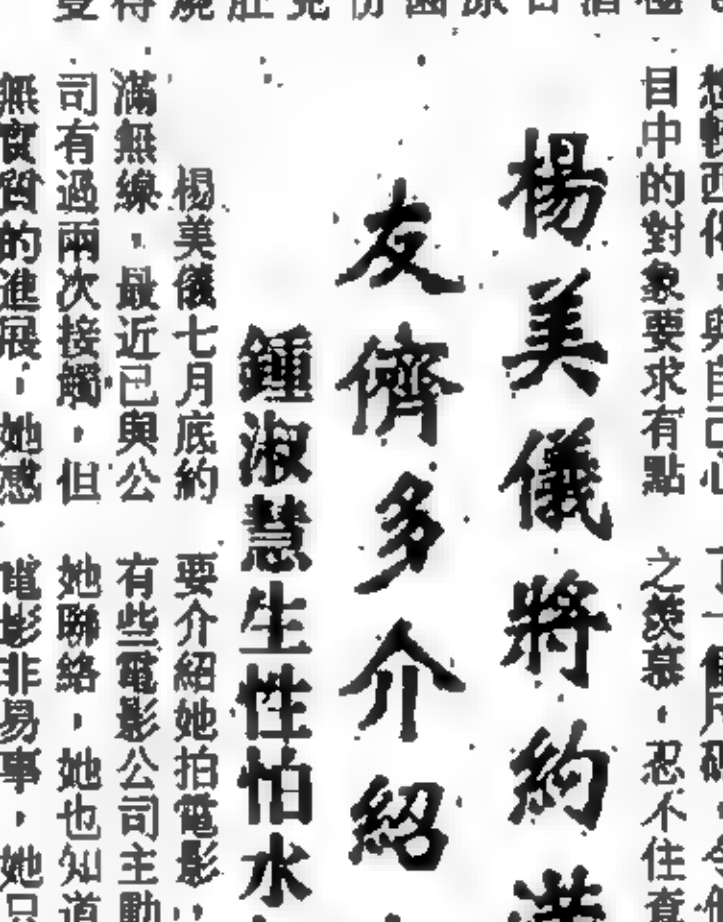 目中的對象要求有點
之羨慕，忍不住查
楊美儀將約滿
友儕多介紹
鍾淑慧生性怕水
楊美儀七月底約
滿無線，最近已與公
司有過兩次接觸，但
無實質的進展，她感
要介紹她拍電影，
有些電影公司主動
她聯絡，她也知道
電影非易事，她只